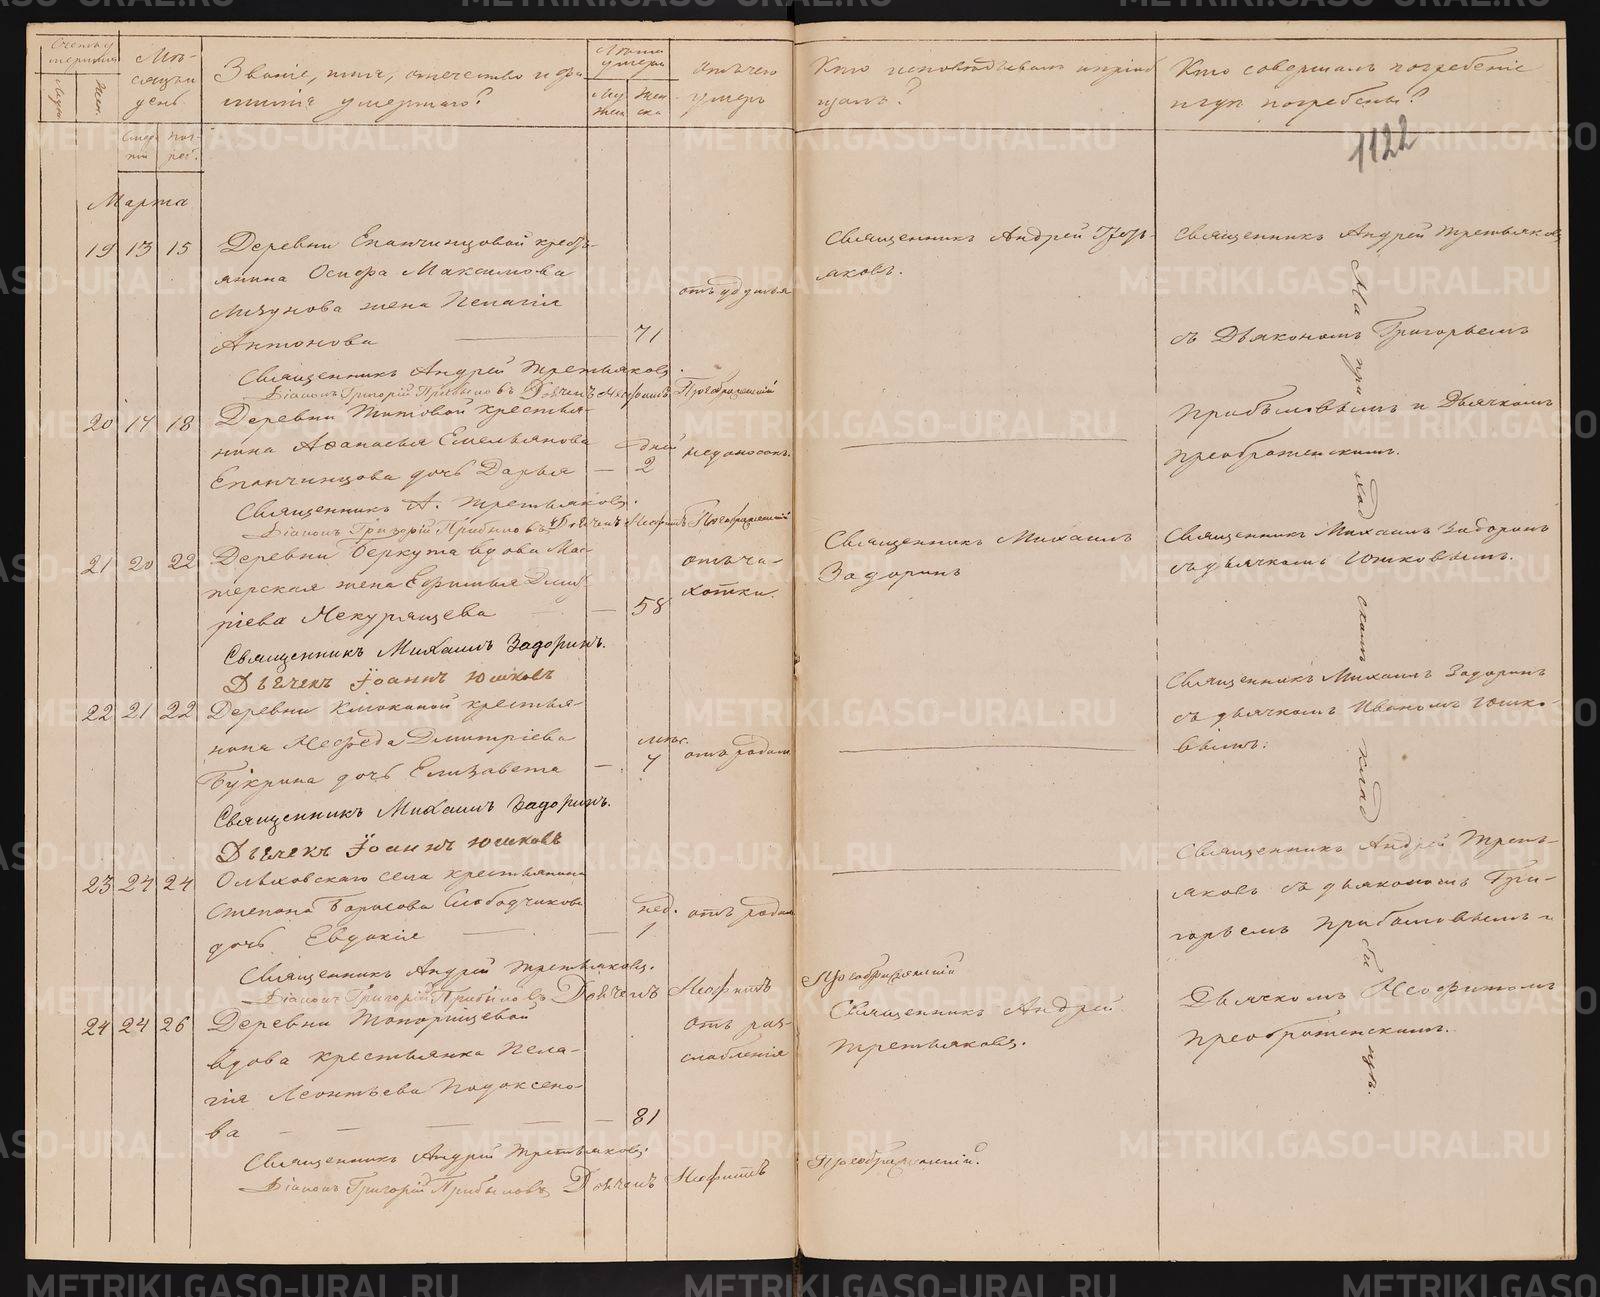 Счетъ умершихъ
Муж.
Жен.
Мѣсяцъ и день
Смерти
Погреб.
Званіе, имя, отечество и фамилія умершаго?
Лѣта умерш.
Мужеска
Женска
Отъ чего умеръ
Кто исповѣдывалъ и пріобщалъ?
Кто совершалъ погребеніе и гдѣ погребены?
1122
Марта
19 13 15 Деревни Епанчинцовой кресть-
янина Осипа Максимова
жена Пелагія
Антонова — 71
отъ удушья
Священникъ Андрей Треть-
яковъ.
Священникъ Андрей Третьяковъ
съ Дьякономъ Григорьемъ
Прибыловымъ и Дьячкомъ
Преображенскимъ.
Священникъ Андрей Третьяковъ.
Діаконъ Григорій Прибыловъ Дьячекъ Неофитъ Преображенскій
20 17 18 Деревни Титовой крестья-
нина Афанасья Емельянова
Епанчинцова дочь Дарья —
дней
2
недоносокъ.
Священникъ А. Третьяковъ.
Діаконъ Григорій Прибыловъ Дьячекъ Неофитъ Преображенскій
21 20 22 Деревни Беркута вдова Мас-
терская жена Ефимья Дмит
ріева Некурящева — 58
отъ ча-
хотки.
Священникъ Михаилъ
Задоринъ
Священникъ Михаилъ Задоринъ
съ дьячкомъ Юшковымъ.
Священникъ Михаилъ Задоринъ.
Дьячекъ Іоаннъ Юшковъ
22 21 22 Деревни крестья-
нина Дмитріева
Букрина дочь Елизавета —
мѣс.
7
отъ родим
Священникъ Михаилъ Задоринъ
съ дьячкомъ Иваномъ Юшко-
вымъ.
Священникъ Михаилъ Задоринъ.
Дьячекъ Іоаннъ Юшковъ
23 24 24 Ольховскаго села крестьянина
Степана Борисова Слободчикова
дочь Евдокія —
нед.
1
отъ родим
Священникъ Андрей Треть-
яковъ съ дьякономъ Гри-
горьемъ Прибыловымъ и
Дьячкомъ Неофитомъ
Преображенскимъ.
Священникъ Андрей Третьяковъ.
Діаконъ Григорій Прибыловъ Дьячекъ Неофитъ Преображенскій
24 24 26 Деревни Топорищевой
вдова крестьянка Пела-
гія Леонтьева Подоксено-
ва — 81
отъ раз-
слабленія
Священникъ Андрей
Третьяковъ.
Священникъ Андрей Третьяковъ.
Діаконъ Григорій Прибыловъ Дьячекъ Неофитъ Преображенскій.
На приходскомъ кладбищѣ.
METRIKI.GASO-URAL.RU